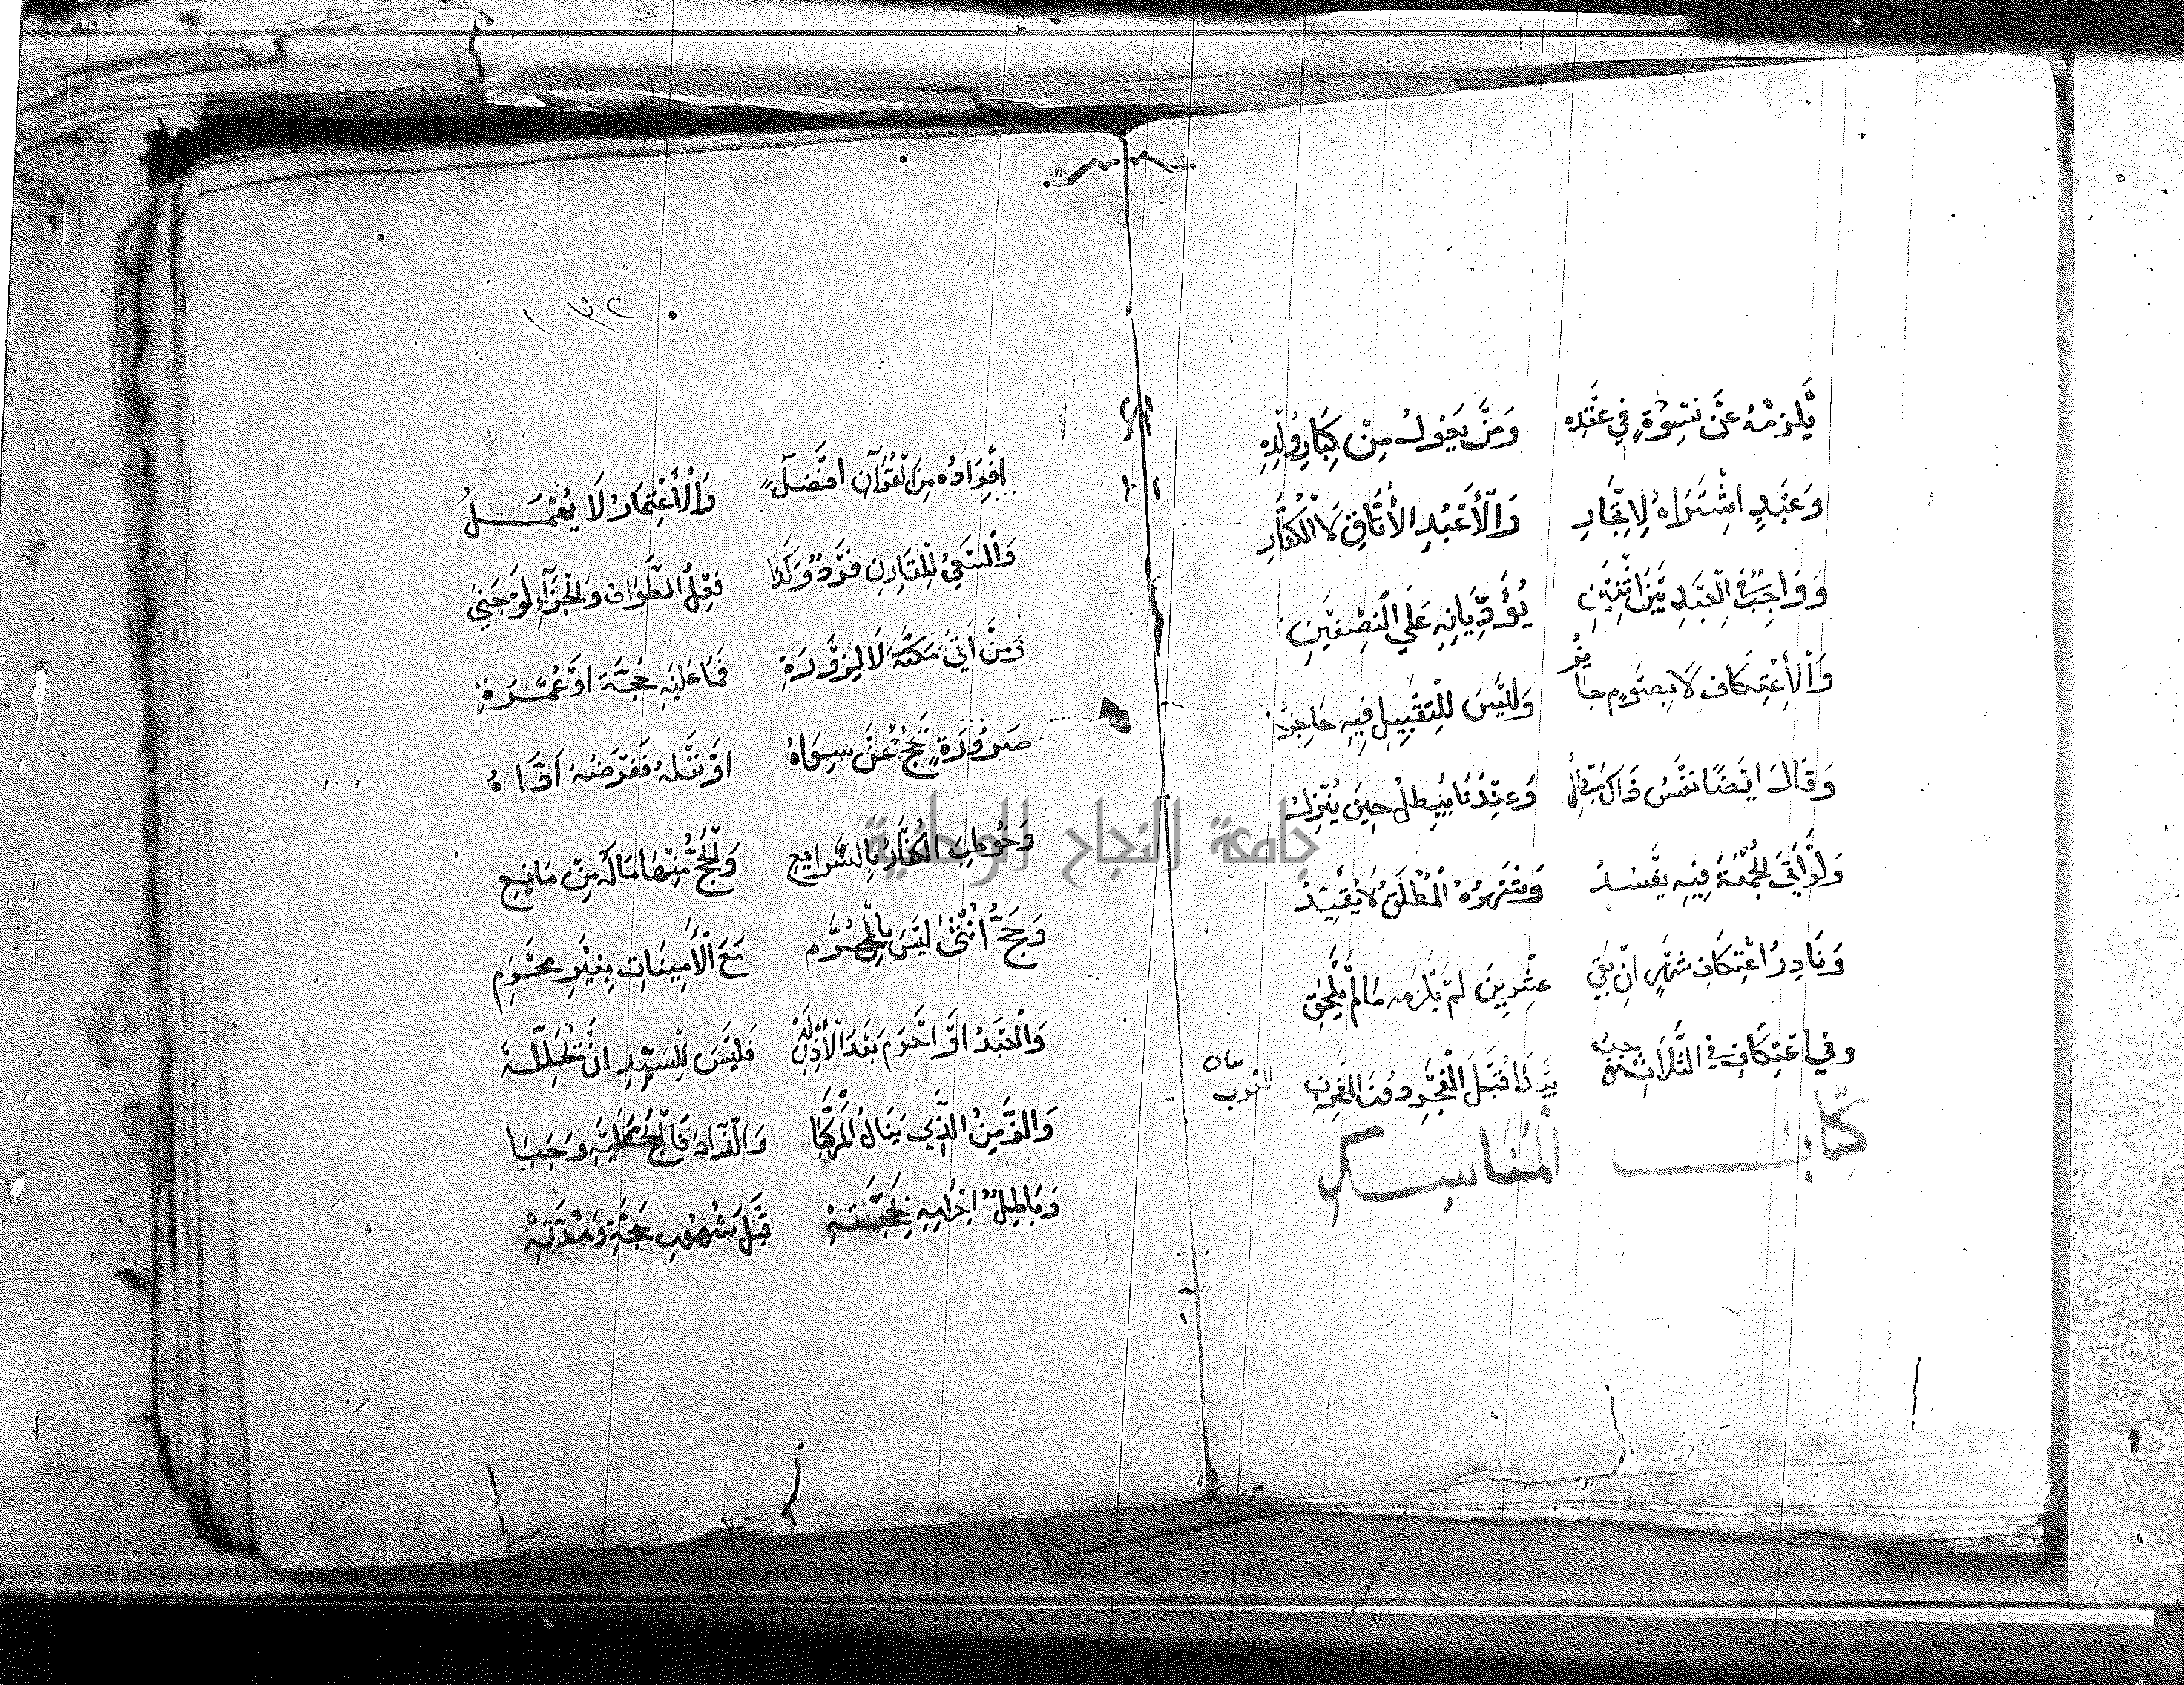 يَلْزَمُهُ عَنْ نِسْوَةٍ فِي عَقْدِهِ وَمَنْ يَعُولُ مِنْ كِبَارِ وُلْدِهِ
وَعَبْدٍ اشْتَرَاهُ لِاتِّجَارِ وَالْأَعْبُدِ الْأُبَّاقِ لَا الْكُفَّارِ
وَوَاجِبُ الْعَبْدِ بَيْنَ اثْنَيْنِ يُؤَدِّيَانِهِ عَلَى النِّصْفَيْنِ
وَالْاِعْتِكَافُ لَا بِصَوْمٍ جَائِزُ وَلَيْسَ لِلتَّقْبِيلِ فِيهِ حَاجِزُ
وَقَالَ ايْضًا نَفْسُ ذَاكَ مُبْطِلُ وَعِنْدَنَا يُبْطِلُ حِينَ يُنْزِلُ
وَلَوْ أَتَى الْجُمْعَةَ فِيهِ يَفْسُدُ وَشَهْرُهُ الْمُطْلَقُ لَا يُقَيَّدُ
وَنَاذِرُ اعْتِكَافِ شَهْرٍ انْ بَقِي عِشْرِينَ لَمْ يَلْزَمْهُ مَا لَمْ يُلْحِقِ
وَفِي اعْتِكَافٍ فِي الثَّلَاثِ يَبْدَا قُبَيْلَ الْفَجْرِ دُونَ الْمَغْرِبِ
كتاب المناسك
١٣٢
افْرَادُهُ مِنَ الْقُرَآنِ افْضَلُ وَالْاِعْتِمَارُ لَا يُعْمَلُ
وَالسَّعْيُ لِلْقَارِنِ فَرْدٌ وَكَذَا قَبْلُ الطَّوَافُ وَالْجَزَاءُ لَوْ جَنَى
وَمَنْ أَتَى مَكَّةَ لَا لِيَزُورَهْ فَمَا عَلَيْهِ حَجَّةٌ اوْ عُمْرَةْ
صَرُورَةٌ يَحُجُّ عَنْ سِوَاهُ اوْ نَفْلَهُ فَفَرْضُهُ أَدَّاهُ
وَخُوطِبَ الْكُفَّارُ بِالشَّرَايِعِ وَالْحَجُّ مِنْهَا مَالَهُ مِنْ مَانِعِ
وَحَجُّ أُنْثَى لَيْسَ بِالْمُحَرَّمِ مَعَ الْأَمِينَاتِ بِغَيْرِ مَحْرَمِ
وَالْعَبْدُ اوْ أَحْرَمَ بَعْدَ الْأِذْنِ لَهْ فَلَيْسَ لِلسَّيِّدِ انْ يُحَلِّلَهْ
وَالزَّمِنُ الَّذِي يَنَالُ الْمَرْكَبَا وَالزَّادَ فَالْحَجُّ عَلَيْهِ وَجَبَا
وَبَاطِلٌ احْرَامُهُ بِحَجَّتِهْ قَبْلَ شُهُورِ حَجَّةٍ وَمُدَّتِهْ
جامعة النجاح الوطنية